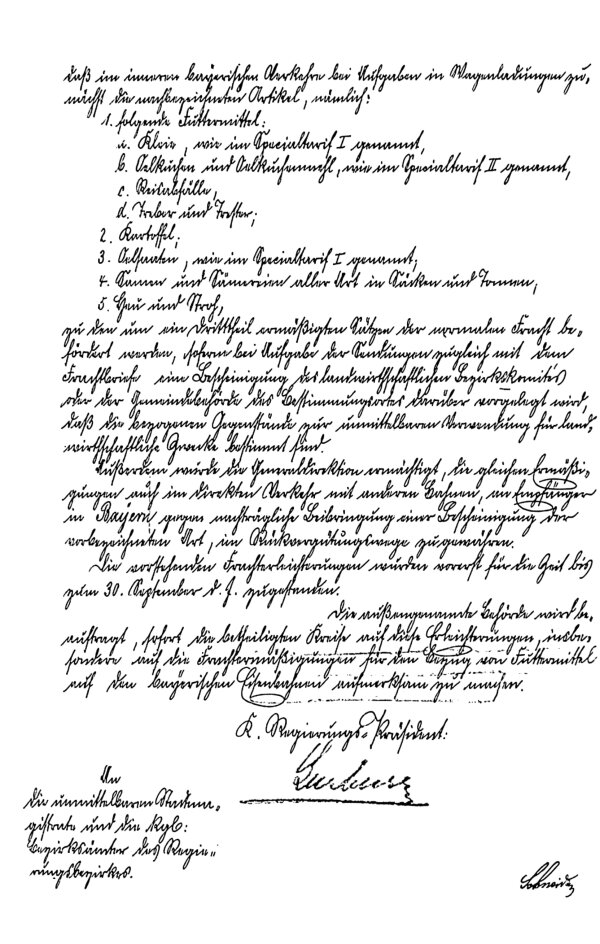 daß im inneren bayerischen Verkehre bei Aufgaben in Wagenladungen zu-
nächst die nachbezeichneten Artikel, nämlich:
1. folgende Futtermittel:
a. Kleie, wie im Specialtarif I genannt,
b. Oelkuchen und Oelkuchenmehl, wie im Specialtarif III genannt,
c. Reisabfälle,
d. Treber und Trester;
2. Kartoffel;
3. Oelsaaten, wie im Specialtarif I genannt;
4. Samen und Sämereien aller Art in Säcken und Tonnen;
5. Heu und Stroh,
zu den um ein Drittheil ermäßigten Sätzen der normalen Fracht be-
fördert werden, sofern bei Aufgabe der Sendungen zugleich mit dem
Frachtbriefe eine Bescheinigung des landwirthschaftlichen Bezirkskomites
oder der Gemeindebehörde des Bestimmungsortes darüber vorgelegt wird,
daß die bezogenen Gegenstände zur unmittelbaren Verwendung für land-
wirthschaftliche Zwecke bestimmt sind.
Außerdem wurde die Generaldirektion ermächtigt, die gleichen Ermäßi-
gungen auch im direkten Verkehr mit anderen Bahnen, an Empfänger
in Bayern gegen nachträgliche Beibringung einer Bescheinigung der
vorbezeichneten Art, im Rückvergütungswege zu gewähren.
Die vorstehenden Frachterleichterungen wurden vorerst für die Zeit bis
zum 30. September d. J. zugestanden.
Die außengenannte Behörde wird be-
auftragt, sofort die betheiligten Kreise auf diese Erleichterungen, insbe-
sondere auf die Frachtermäßigungen für den Bezug von Futtermittel
auf den bayerischen Eisenbahnen aufmerksam zu machen.
K. Regierungs-Präsident:
An
die unmittelbaren Stadtma-
gistrate und die kgl:
Bezirksämter des Regie-
rungsbezirkes.
Schneider